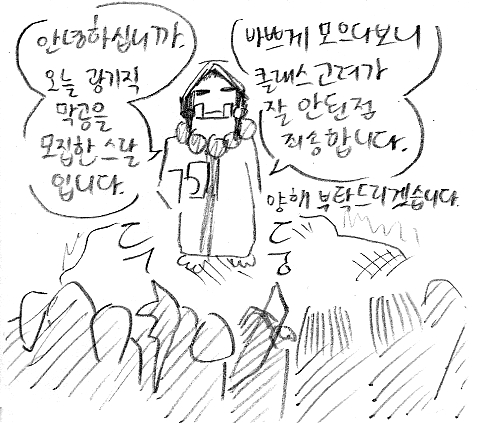 안녕하십니까.
오늘 광기직
막공을
모집한 스랄
입니다.
바쁘게 모으다보니
클래스고려가
잘 안된점
죄송합니다.
양해 부탁드리겠습니다.
75
두
둥